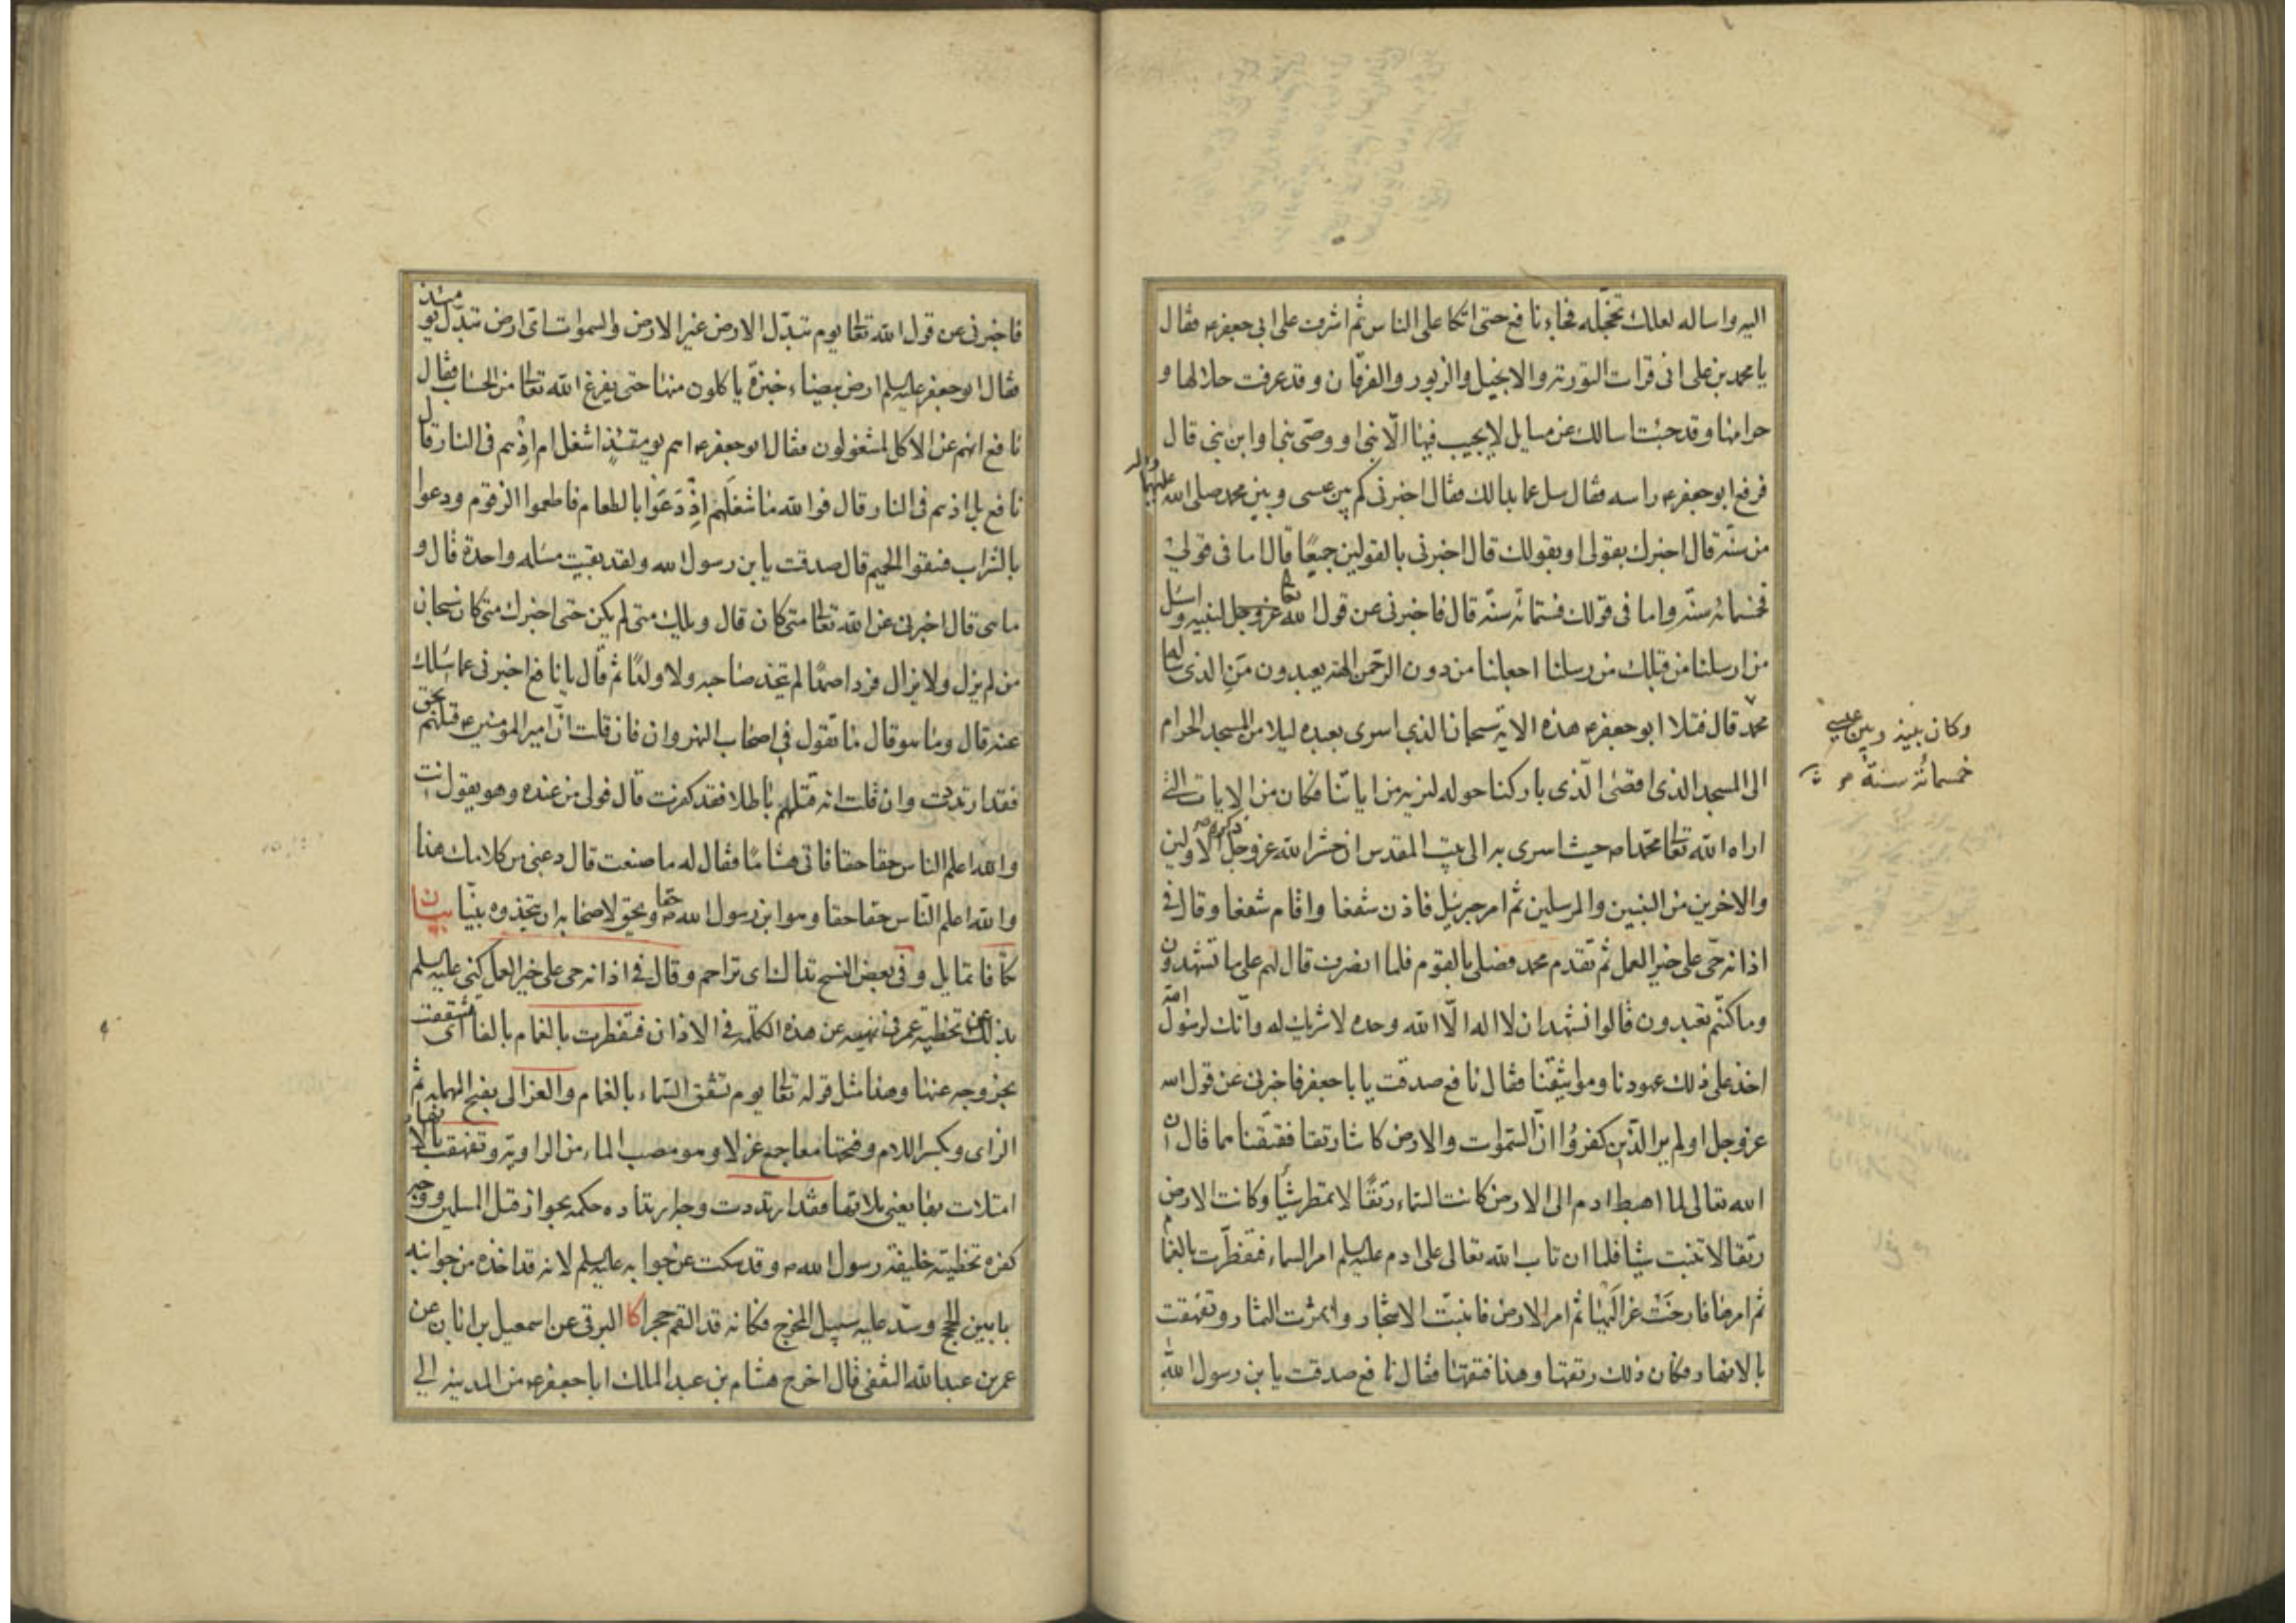 اليه واساله لعلك تخجله فجاء نافع حتى اتكا على الناس ثم اشرف على ابى جعفرء فقال
يا محمد بن على انى قرات التورية والانجيل والزبور والفرقان وقد عرفت حلالها و
حرامها وقد جئت اسالك عن مسايل لا يجيب فيها الّا نبىّ او وصّى نبى او ابن نبى قال
فرفع ابو جعفرء راسه فقال سل عما بدا لك فقال اخبرنى كم بين عيسى وبين محمد صلى الله عليهما واله
من سنّة قال اخبرك بقولى او بقولك قال اخبرنى بالقولين جميعًا قال اما فى قولى
فخمسمائة سنّة واما فى قولك فستمائة سنّة قال فاخبرنى عن قول الله عزوجل لنبيه واسئل
من ارسلنا من قبلك من رسلنا اجعلنا من دون الرحمن الهة يعبدون من الذى سالهَ
محمدّ قال فتلا ابو جعفرء هذه الاية سبحان الذى اسرى بعبده ليلا من المسجد الحرام
الى المسجد الذى اقصٰى الّذى باركنا حوله لنريه من اياتنا فكان من الايات التى
اراه الله تعالى محمّدا ص حيث اسرى به الى بيت المقدس ان حشر الله عزوجل الاولين
والاخرين من النبيين والمرسلين ثم امر جبرئيل فاذن شفعا واقام شفعا وقال فى
اذانه حّى على خير العمل ثم تقدم محمد فصلى بالقوم فلما انصرف قال لهم على ما تشهدون
وما كنتم تعبدون قالوا نشهد ان لا اله الّا الله وحده لا شريك له وانّك لرسول الله
اخذ على ذلك عهودنا ومواثيقنا فقال نافع صدقت يا با جعفر فاخبرنى عن قول الله
عزوجل اولم ير الذّين كفروُا انّ السّموات والارض كانتا رتقا ففتقناهما قال انّ
الله تعالى لما اهبط ادم الى الارض كانت السّماء رتقًا لا تمطر شيئًا وكانت الارض
رتقا لا تنبت شيئا فلما ان تاب الله تعالى على ادم عليه السلم امر السماء فتفطّرت بالغمام
ثم امرها فارخت عزاليها ثم امر الارض فانبتت الاشجار واثمرت الثمار وتفهقت
بالانهار فكان ذلك رتقها وهذا فتقها فقال نافع صدقت يا بن رسول الله
وكان بينه وبين عيسى
خمسمائة سنة
فاخبرنى عن قول الله تعالى يوم تبدّل الارض غير الارض والسموات اىّ ارض تبدّل يومئذ
فقال ابو جعفر عليه السلم ارض بيضاء خبزة ياكلون منها حتى يفرغ الله تعالى من الحساب فقال
نافع انهم عن الاكل لمشغولون فقال ابو جعفرء اهم يومئذٍ اشغل ام اذ هم فى النار قال
نافع بل اذ هم فى النار قال فوالله ما شغلهم اذ دَعَوْا بالطعام فاطعموا الزقوم ودعوا
بالشراب فسقوا الحميم قال صدقت يا بن رسول الله ولقد بقيت مسئله واحدة قال و
ما هى قال اخبرنى عن الله تعالى متى كان قال ويلك متى لم يكن حتى اخبرك متى كان سبحان
من لم يزل ولا يزال فردا صمدًا لم يتخذ صاحبه ولا ولدًا ثم قال يا نافع اخبرنى عما اسئلك
عنه قال وما هو قال ما تقول فى اصحاب النهروان فان قلت انّ امير المومنينء قتلهم بحق
فقد ارتددت وان قلت انه قتلهم باطلا فقد كفرت قال فولى من عنده وهو يقول انت
والله اعلم الناس حقا حقا فاتى هشامًا فقال له ما صنعت قال دعنى من كلامك هذا
والله اعلم النّاس حقا حقا وهو ابن رسول الله ص حقا ويحق لاصحابه ان يتخذوه نبيّا بيان
تكّافا تمايل وفى بعض النسخ تداك اى تراحم وقال فى اذانه حى على خير العمل كنى عليه السلم
بذلك عن تخطية عمر فى نهيه عن هذه الكلمة فى الاذان فتفطرت بالغمام بالفا اى تشققت
بخروجه عنها وهذا مثل قوله تعالى يوم تشقق السّماء بالغمام والعزالى بفتح المهملة ثم
الزاى وبكسر اللام وفتحها معا جمع عزلا وهو مصب الماء من الراوية وتفهقت بالانهار
امتلات بها يعنى بلاقها فقد ارتددت وجه ارتداده حكمه بجواز قتل المسلمين ووجه
كفره تخطيته خليفة رسول الله ص وقد سكت عن جوابه عليه السلم لانه قد اخذه من جوانبه
بابين الحجج وسدّ عليه سبيل المخرج فكانه قد القم حجرا كا البرقى عن اسمعيل بن ابان عن
عمر بن عبد الله الثقفى قال اخرج هشام بن عبد الملك ابا جعفرء من المدينه الى